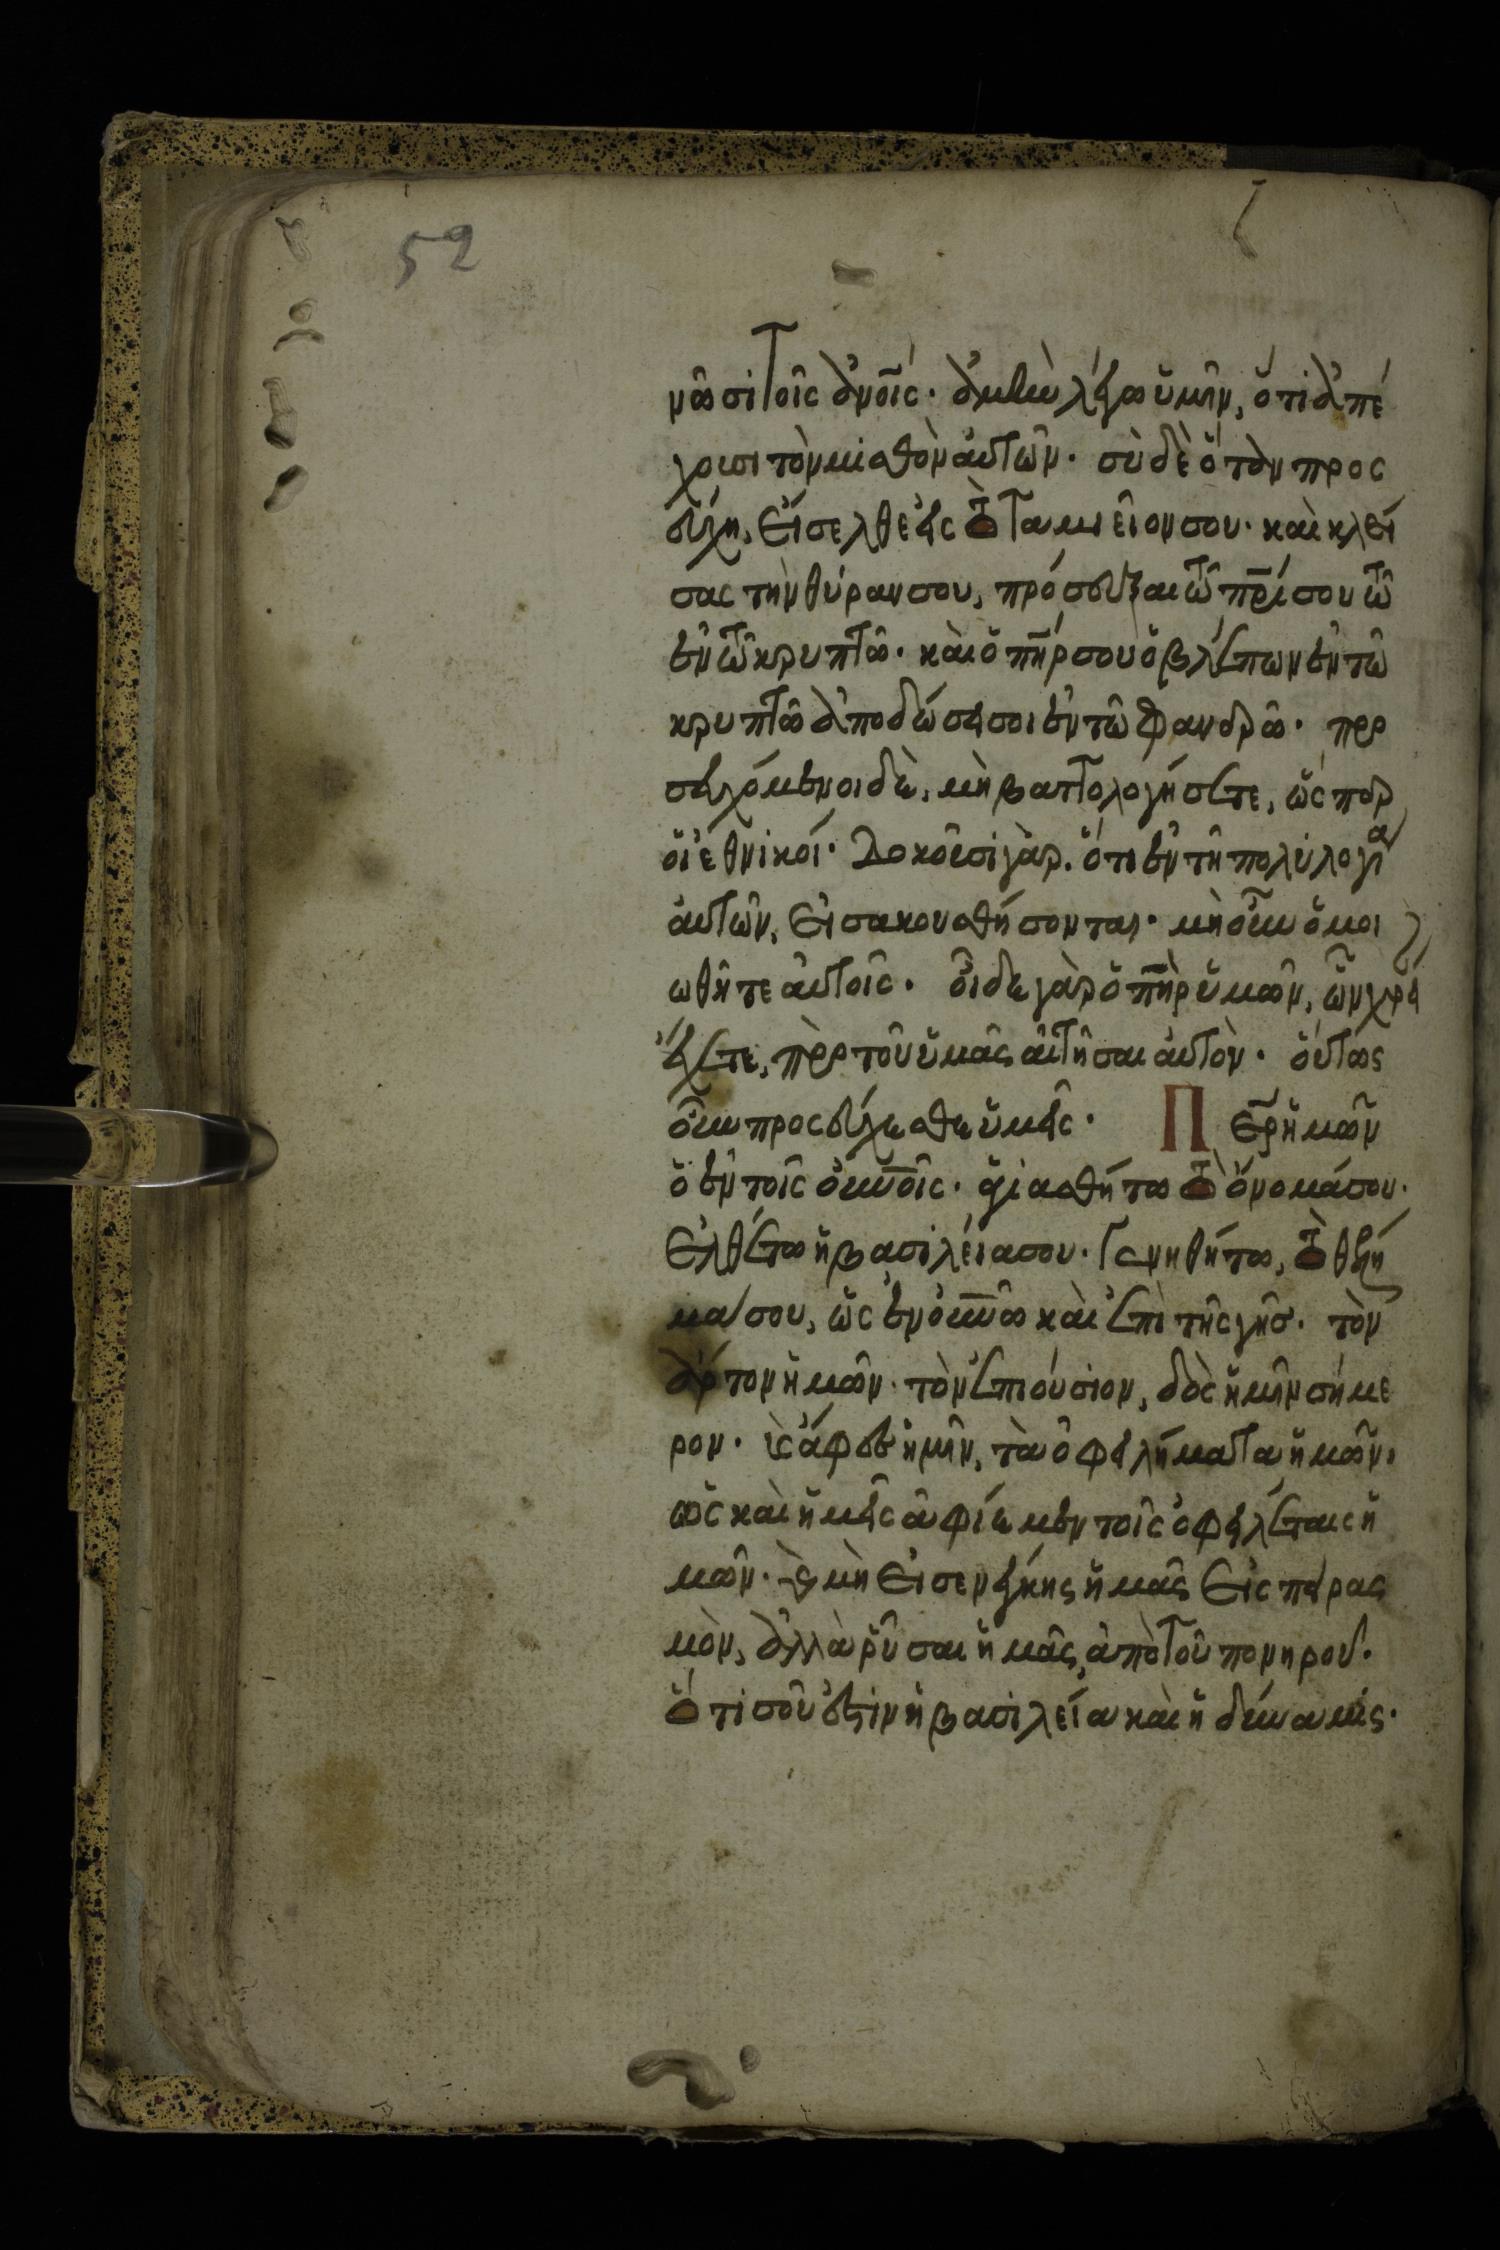 52
νῶσι τοῖς ἀν̅οις. ἀμὴν λέγω ὑμῖν, ὅτι ἀπέ
χουσι τὸν μισθὸν αὐτῶν. σὺ δὲ ὅταν προς
εύχη, εἴσελθε εἰς τὸ ταμιεῖον σου. καὶ κλεί
σας τὴν θύραν σου, πρόσευξαι τῶ πρ̅ί σου τῶ
ἐν τῶ κρυπτῶ. καὶ ὁ πη̅ρ σου ὁ βλέπων ἐν τῶ
κρυπτῶ ἀποδώσει σοι ἐν τῶ φανερῶ. προ
σευχόμενοι δὲ, μὴ βαττολογήσετε, ὥσπερ
οἱ ἐθνικοί. δοκοῦσι γὰρ. ὅτι ἐν τῆ πολυλογία
αὐτῶν, εἰσακουσθήσονται. μὴ οὖν ὁμοι
ωθῆτε αὐτοῖς. οἶδε γὰρ ὁ πη̅ρ ὑμῶν, ὧν χρεί
έχετε, πρὸ τοῦ ὑμᾶς αἰτῆσαι αὐτὸν. οὕτως
οὖν προσεύχεσθε ὑμεῖς. Π ε̅ρ ἡμῶν
ὁ ἐν τοῖς οὐν̅οις. ἁγιασθήτω τὸ ὄνομά σου.
ἐλθέτω ἡ βασιλεία σου. γενηθήτω, τὸ θέλη
μα σου, ὡς ἐν οὐν̅ω καὶ ἐπὶ τῆς γῆσ. τὸν
ἄρτον ἡμῶν τὸν ἐπιούσιον, δὸς ἡμῖν σήμε
ρον. κ̀ ἄφες ἡμῖν, τὰ ὀφειλήματα ἡμῶν.
ὡς καὶ ἡμεῖς ἀφίεμεν τοῖς ὀφειλέταις ἡ
μῶν. κ̀ μὴ εἰσενείκης ἡμᾶς εἰς πειρας
μὸν, ἀλλὰ ῥῦσαι ἡμᾶς, ἀπὸ τοῦ πονηροῦ.
ὅτι σοῦ ἐστὶν ἡ βασιλεία καὶ ἡ δύναμις.